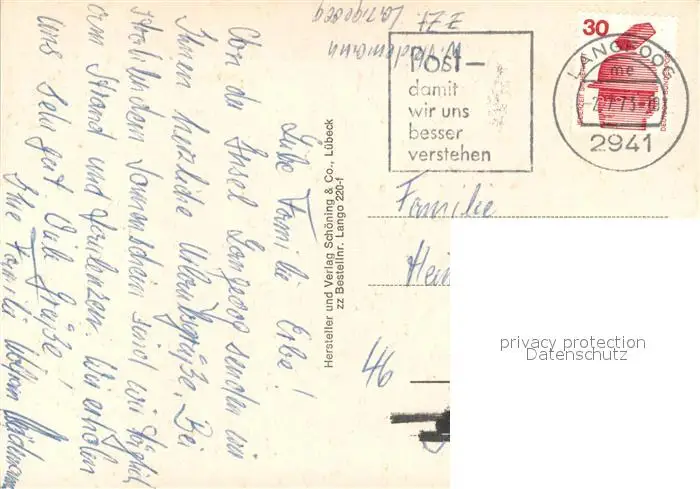 Liebe Familie Erbe!
Von der Insel Langeoog senden wir
Ihnen herzliche Urlaubsgrüße. Bei
strahlendem Sonnenschein sind wir täglich
am Strand und faulenzen. Wir erholen
uns sehr gut. Viele Grüße!
Ihre Familie
W. Wiedemann
z Zt. Langeoog
Hersteller und Verlag Schöning & Co., Lübeck
zz Bestellnr. Lango 220-f
Post –
damit
wir uns
besser
verstehen
30
LANGEOOG
me
2941
Familie
46
privacy protection
Datenschutz